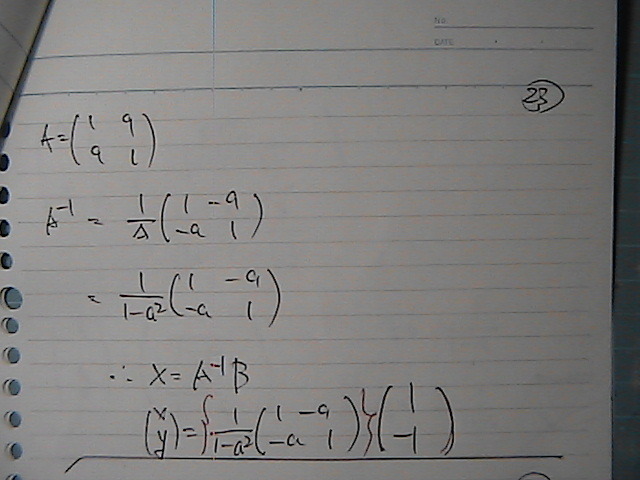 No.
DATE
23
A = ( 1 a
a 1 )
A⁻¹ = 1/Δ ( 1 -a
-a 1 )
= 1/(1-a²) ( 1 -a
-a 1 )
∴ X = A⁻¹B
(x
y) = { 1/(1-a²) ( 1 -a
-a 1 ) } ( 1
-1 )